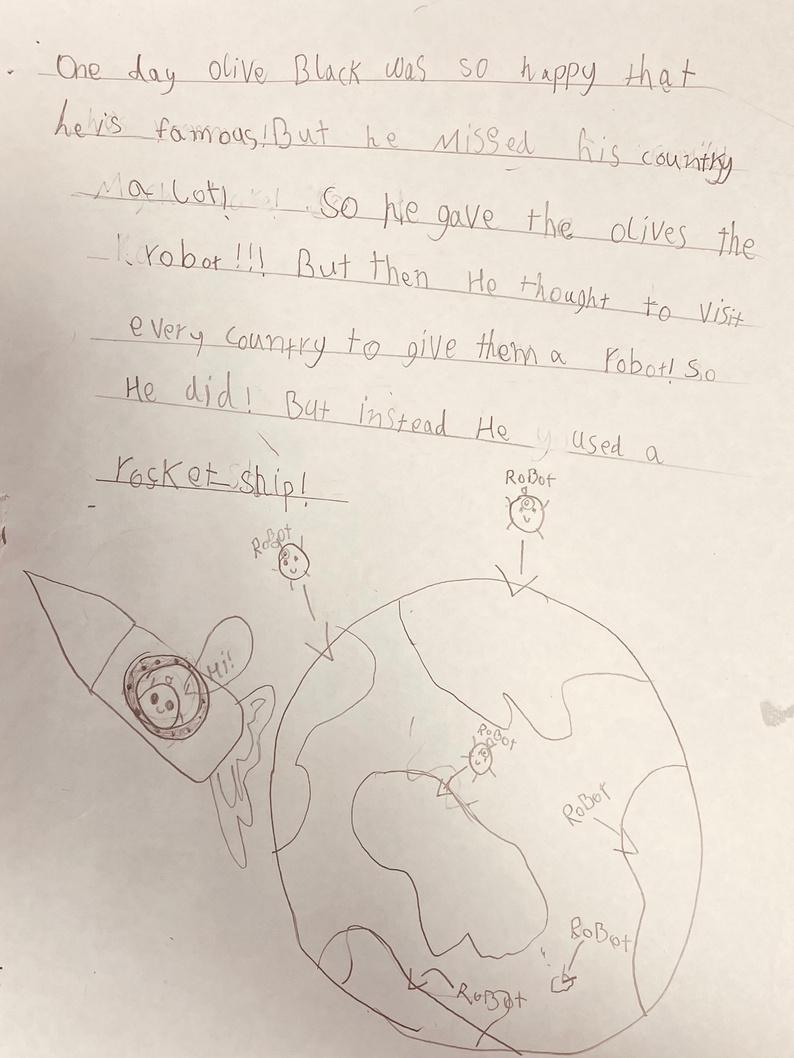 One day olive Black was so happy that
he is famous! But he missed his country
a Lot! So he gave the olives the
robot!!! But then He thought to visit
every country to give them a robot! So
He did! But instead He used a
rocket ship!
RoBot
RoBot
Hi!
RoBot
RoBot
RoBot
RoBot